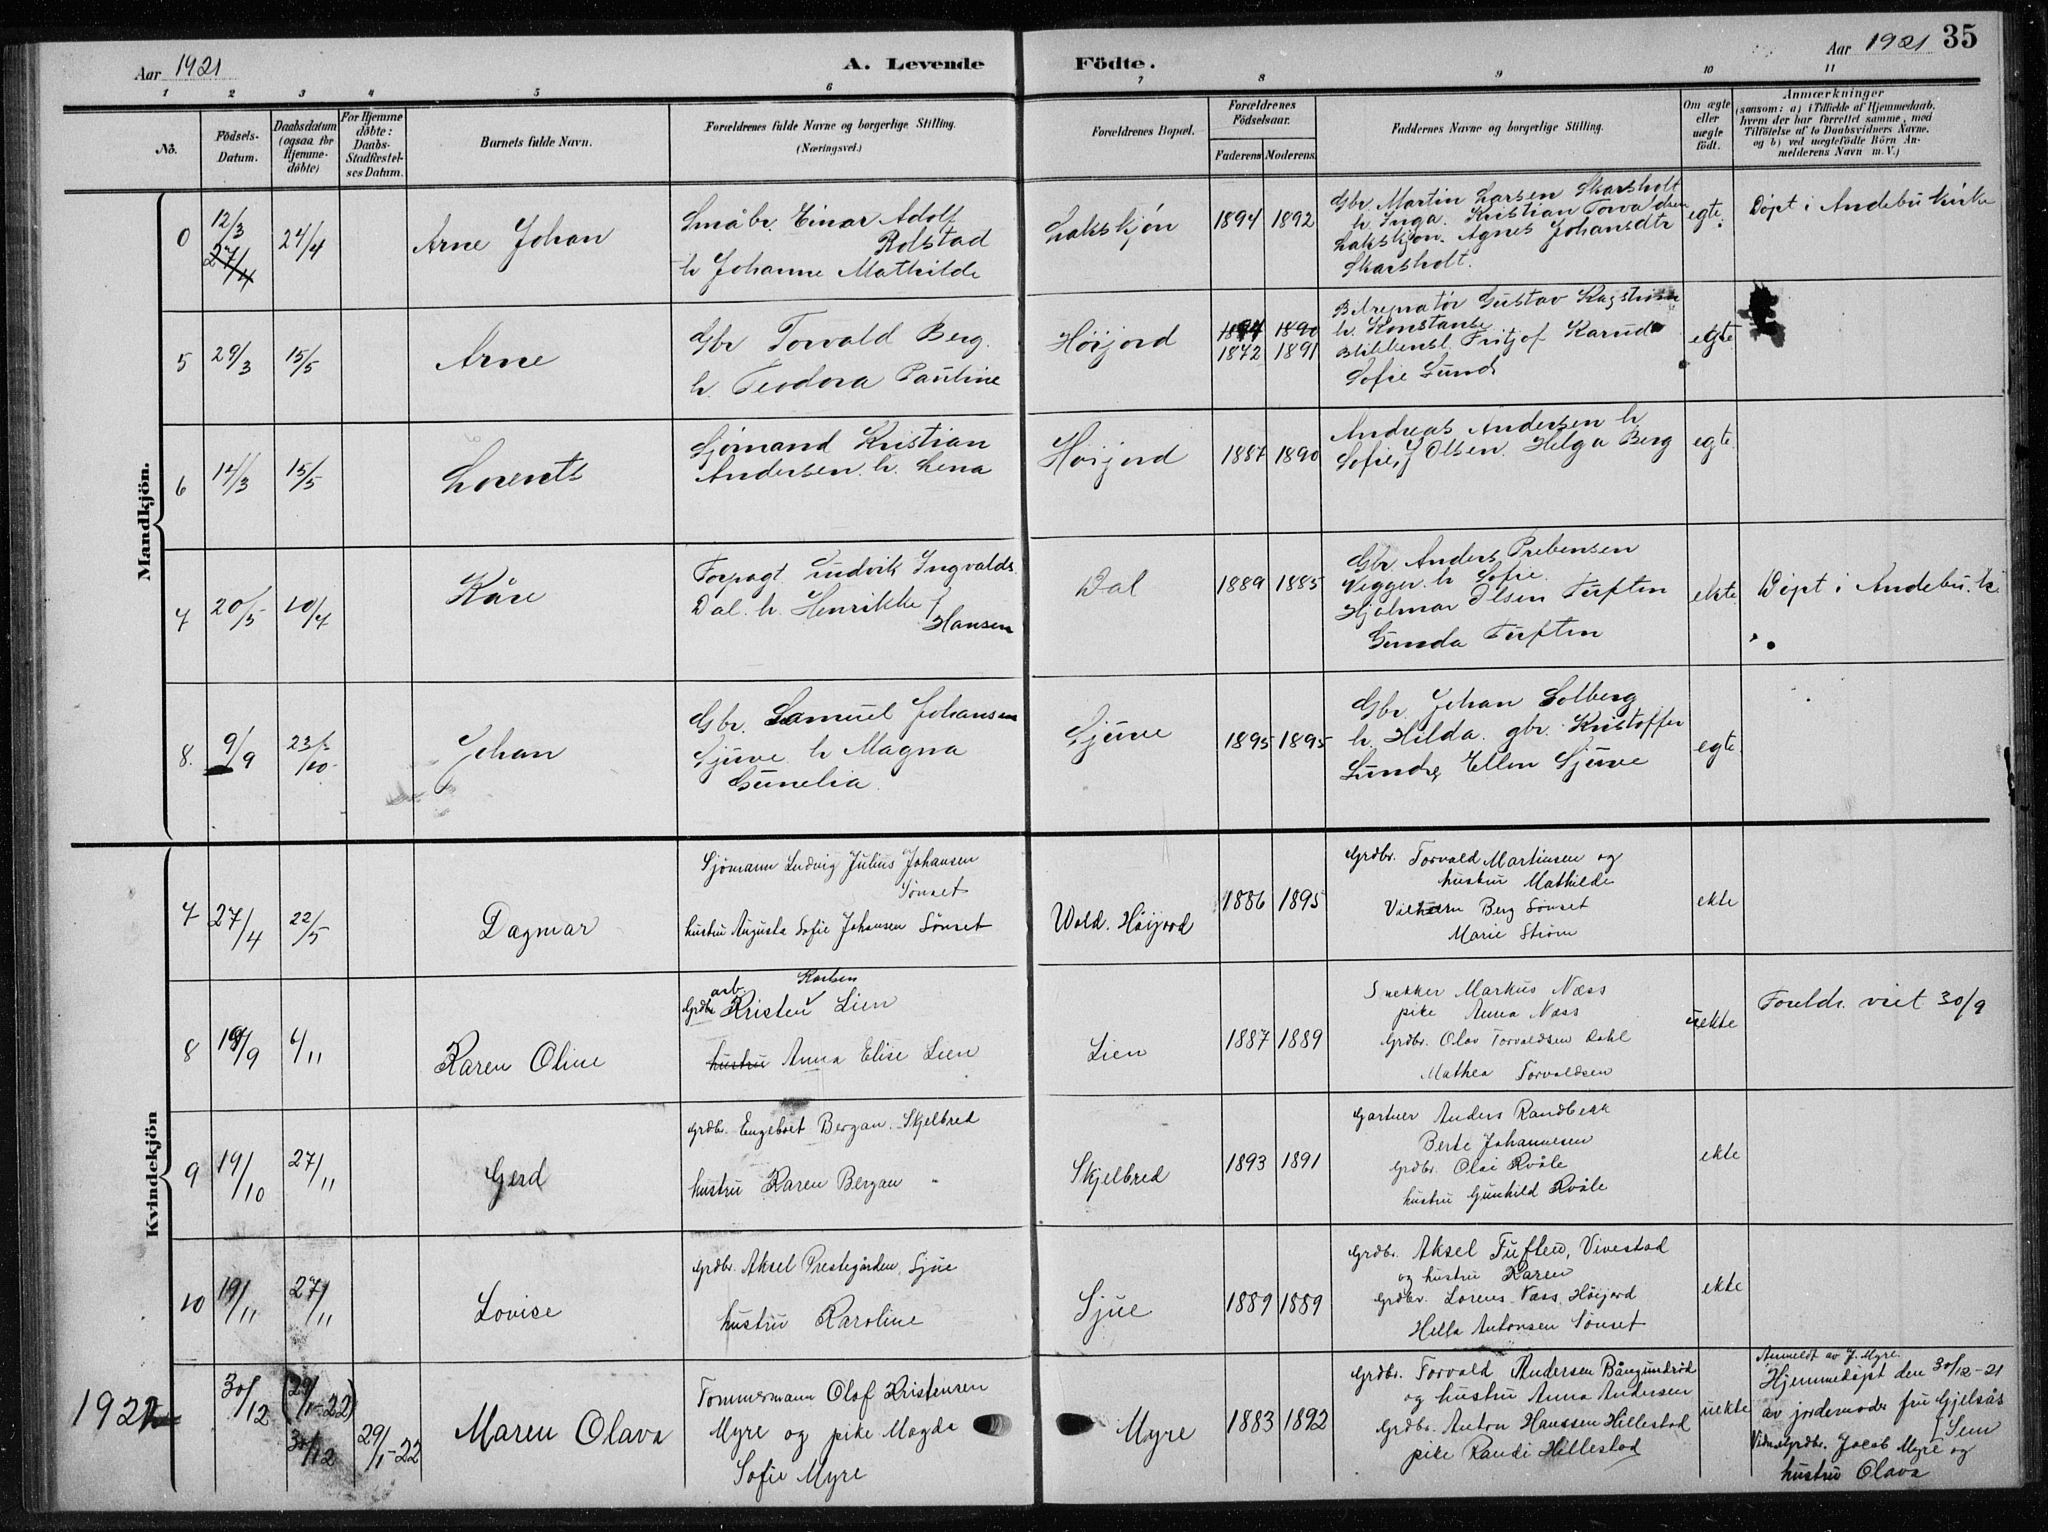 Aar 1921
A. Levende Födte.
Aar 1921 35
1 2 3 4 5 6 7 8 9 10 11
No.
Födsels-Datum.
Daabsdatum (ogsaa for Hjemme-døbte)
For Hjemme døbte: Daabs-Stadfæstelses Datum.
Barnets fulde Navn.
Forældrenes fulde Navne og borgerlige Stilling. (Næringsvei.)
Forældrenes Bopæl.
Forældrenes Födselsaar.
Faderens Moderens.
Faddernes Navne og borgerlige Stilling.
Om ægte eller uægte født.
Anmærkninger
(saasom: a) i Tilfælde af Hjemmedaab, hvem der har forrettet samme, med Tilföielse af to Daabsvidners Navne. og b) ved uægtefödte Börn Anmelderens Navn m. V.)
Mandkjön.
0 12/3 27/4 24/4
Arne Johan
Småbr. Einar Adolf
Rolstad
h Johanne Mathilde
Lakskjøn
1894 1892
Gbr Martin Larsen Skarsholt
h Inga. Kristian Torvaldsen
Lakskjøn. Agnes Johansdtr
Skarsholt.
egte.
Døpt i Andebu kirke
5 29/3 15/5
Arne
Gbr Torvald Berg.
h. Teodora Pauline
Høijord
1894 1890
1872 1891
Gustav
h. Konstanse
Blikkensl. Fritjof Karud
Sofie Lund
egte.
6 14/3 15/5
Lorents
Sjømand Kristian
Andersen h. Lena
Høijord
1887 1890
Andreas Andersen h
Sofie, J Olsen. Helga Berg
egte.
7 20/3 10/4
Kåre
Forpagt. Ludvik Ingvalds.
Dal. h. Henrikke f
Hansen
Dal
1889 1885
Gbr. Anders Prebensen
Vegger. h Sofie.
Hjalmar Olsen Tuften
Gunda Tuften
ekte.
Døpt i Andebu. k.
8. 9/9 23/10
Johan
Gbr. Samuel Johansen
Sjuve h Magna
Gunelia.
Sjuve
1895 1895
Gbr. Johan Solberg
h. Hilda. gbr. Kristoffer
Lunde, Ellen Sjuve
egte.
Kvindekjön
7 27/4 22/5
Dagmar
Sjømann Ludvig Julius Johansen
Sønset
hustru Augusta Sofie Johansen Sønset
Wold. Høijord
1886 1895
Grdbr. Torvald Martinsen og
hustru Mathilde
Vilhelm Berg Sønset
Marie Strøm
ekte
8 19/9 6/11
Karen Oline
arb. Karlsen
Grdbr Kristen Lien
hustru Anna Elise Lien
Lien
1887 1889
Snekker Markus Næss
pike Anna Næss
Grdbr. Olav Torvaldsen Dahl
Mathea Torvaldsen
uekte
Foreldr. viet 30/9
9 19/10 27/11
Gerd
Grdbr. Engebret Bergan. Skjelbred
hustru Karen Bergan "
Skjelbred
1893 1891
Gartner Anders Randbekk
Berte Johannesen
Grdbr. Olai Kvåle
hustru Gunhild Kvåle
ekte
10 19/11 27/11
Lovise
Grdbr. Aksel Prestegården, Sjue
hustru Karoline
Sjue
1889 1889
Grdbr. Aksel Tuften, Vivestad
og hustru Karen
Grdbr. Lorens Næss, Høijord
Hella Antonsen Sønset
ekte
1922
30/12 (29/1-22) 30/12 29/1-22
Maren Olava
Tømmermann Olaf Kristensen
Myre og pike Magda
Sofie Myre
Myre
1883 1892
Grdbr. Torvald Andersen Bångundrød
og hustru Anna Andersen
Grdbr. Anton Hanssen Hillestad
pike Randi Hillestad
uekte
Anmeldt av J. Myre.
Hjemmedøpt den 30/12-21
av jordemoder fru Gjelsås
[Sem
Vidner Grdbr. Jacob Myre og
hustru Olava